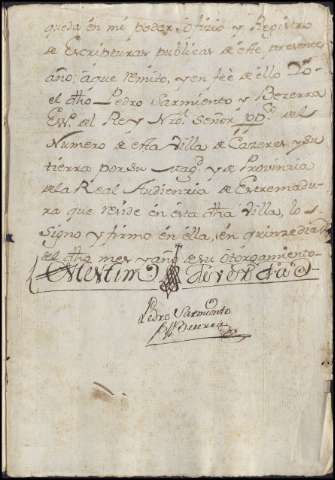 queda en mi poder, oficio y Registro
de Escripturas publicas de este presente
año; a que remito, y en feè de ello Yo
el dho Pedro Sarmiento y Bezerra
Essno. del Rey Nrō. Señor pp.co del
Numero de esta Villa de Cazeres, y su
tierra por su Mag.d y de Provincia
de la Real Audienzia de Estremadu
ra que reside en esta dha Villa, lo
Signo y firmo en ella, en quinze dias
del dho mes y año de su otorgamiento
En testim.o de verdad
Pedro Sarmiento
y Bezerra